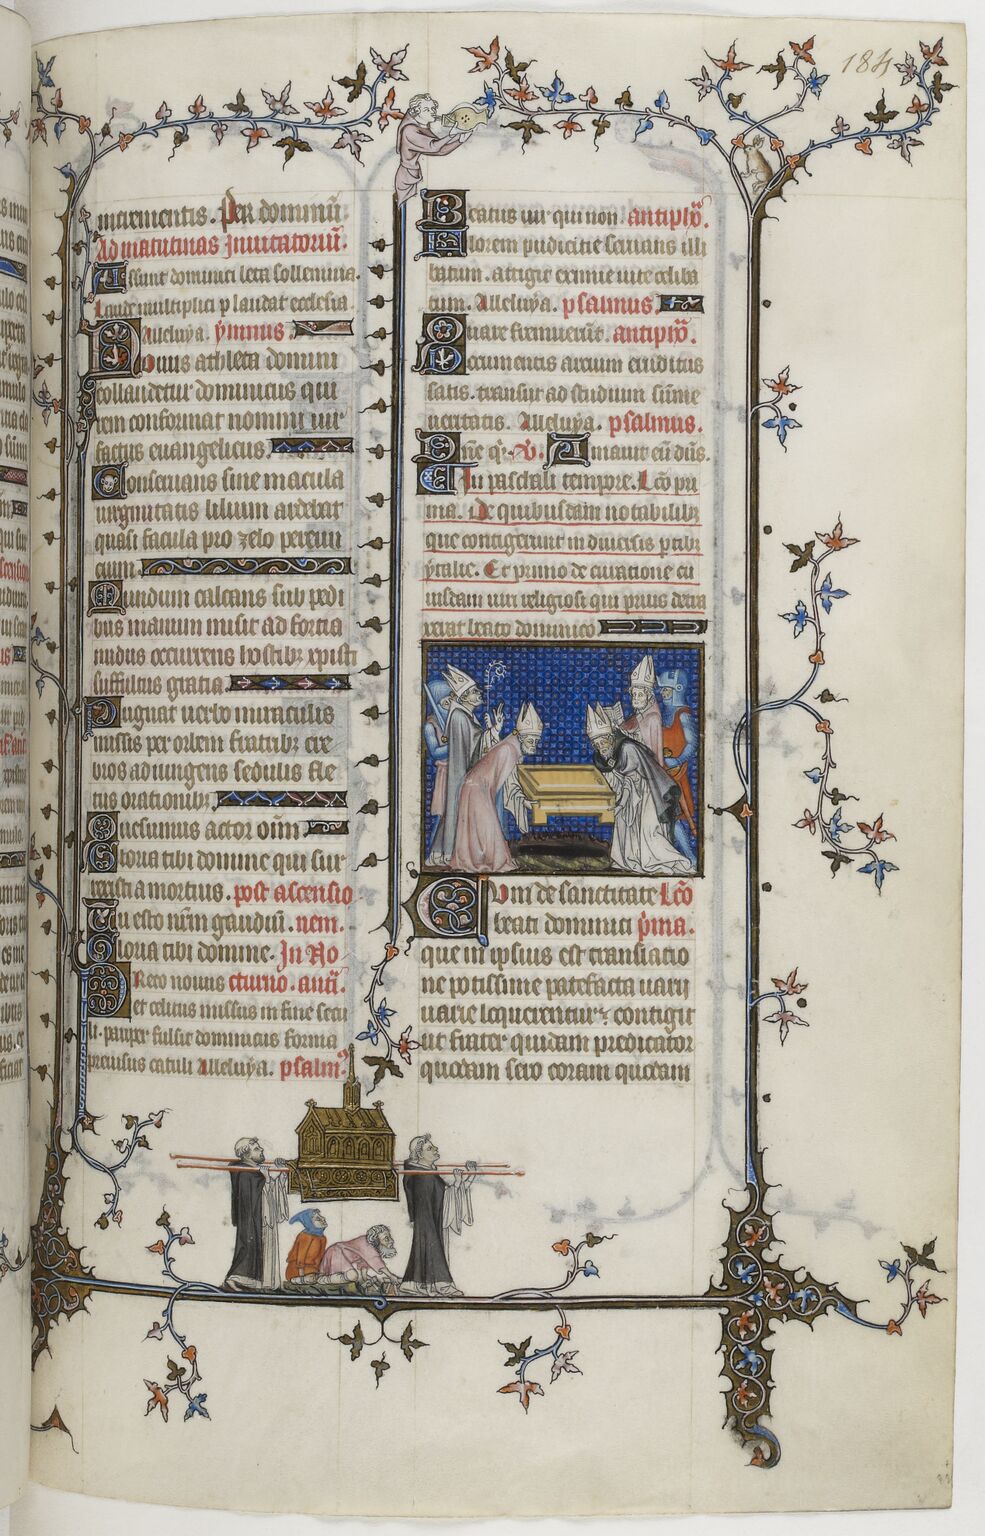 184
incrementis. Per dominū.
Ad matutinas Inuitatoriū.
Assunt dominici leta sollennia.
Laude multiplici plaudat ecclesia
Alleluya. ymnus.
Nouus athleta domini
collaudetur dominicus qui
rem conformat nomini uir
factus euangelicus.
Conseruans sine macula
uirginitatis lilium ardebat
quasi facula pro zelo pereun
cium.
Mundum calcans sub pedi
bus manum misit ad fortia
nudus occurrens hostibꝫ xpisti
suffultus gratia.
Pugnat uerbo miraculis
missis per orbem fratribꝫ cre
bros adiungens sedulis fle
tus orationibꝫ.
Quesumus actor oīm
Gloria tibi domine qui sur
rexisti a mortuis. post ascensio
Tu esto nr̄m gaudiū. nem.
Gloria tibi domine. In No
Preco nouus cturno. antī.
et celicus missus in fine secu
li. pauper fulsit dominicus forma
preuisus catuli Alleluya. psalm̄.
Beatus uir qui non antiphō.
Florem pudicicie seruans illi
batum. attigit eximie uite celiba
tum. Alleluya. psalmus.
Quare fremuerūt. antiphō.
Documentis artium eruditus
satis. transiit ad studium sūme
ueritatis. Alleluya. psalmus.
Dn̄e qͥ. V. Amauit eū dn̄s.
In paschali tempore. Lc̄o pri
ma. De quibusdam notabilibꝫ
que contigerunt in diuersis ꝑtibꝫ
ytalie. Et primo de curatione cu
iusdam uiri religiosi qui prius detra
xerat beato dominico
Cum de sanctitate Lc̄o
beati dominici pͥma.
que in ipsius est translatio
ne potissime patefacta uarij
uarie loquerentur. contigit
ut frater quidam predicator
quodam sero coram quodam